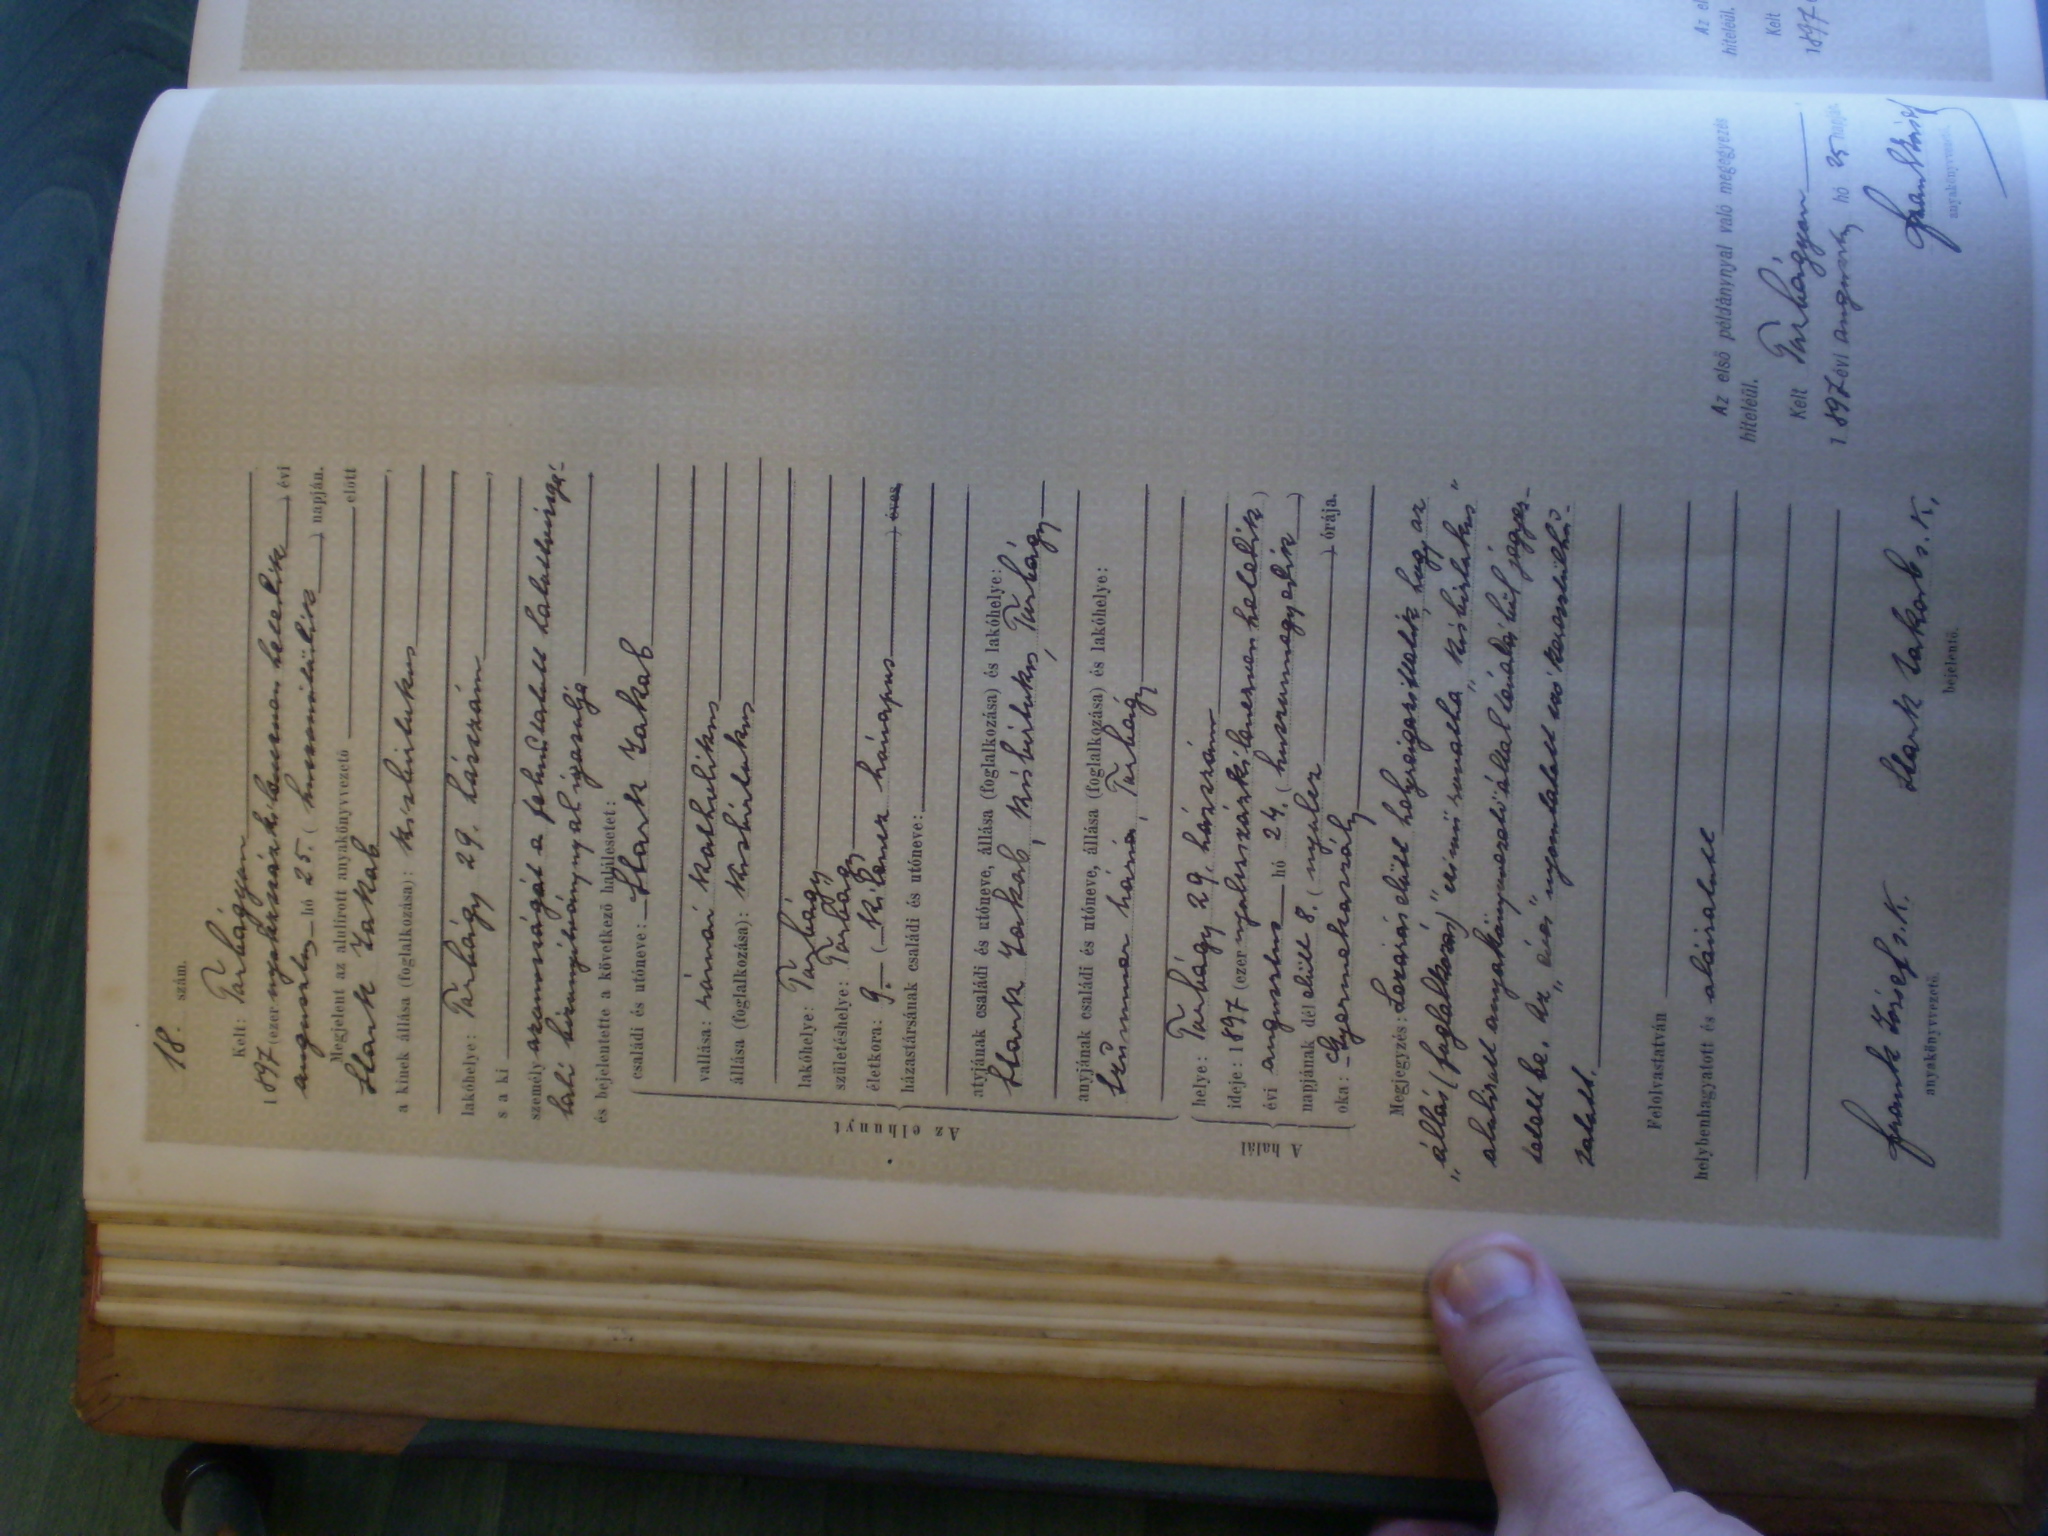 18. szám.
Kelt: Tárbágyon
1897 (ezernyolczszázkilenczvenhetedik) évi
augusztus hó 25. (huszonötödik) napján.
Megjelent az alulírott anyakönyvvezető előtt
Stark Jakab
a kinek állása (foglalkozása): kisbirtokos
lakóhelye: Tárbágy 29. házszám
s a ki
személyazonosságát a felmutatott
bizonyítványával igazolja
és bejelentette a következő halálesetet:
Az elhunyt
családi és utóneve: Stark Jakab
vallása: római katholikus
állása (foglalkozása): kisbirtokos
lakóhelye: Tárbágy
születéshelye: Tárbágy
életkora: 9. (kilencz hónapos) éves
házastársának családi és utóneve:
atyjának családi és utóneve, állása (foglalkozása) és lakóhelye:
Stark Jakab, kisbirtokos, Tárbágy
anyjának családi és utóneve, állása (foglalkozása) és lakóhelye:
Mária, Tárbágy
A halál
helye: Tárbágy 29. házszám
ideje: 1897 (ezernyolczszázkilenczvenhetedik)
évi augusztus hó 24. (huszonnegyedik)
napjának dél előtt 8. (nyolcz) órája.
oka: Gyermekaszály
Megjegyzés: Lezárás előtt helyreigazíttatik, hogy az
„állás (foglalkozás)" czímű rovatba „kisbirtokos"
alulírott anyakönyvvezető által tévedésből jegyez-
tetett be. Az „éves" nyomtatott szó keresztülhú-
zatott.
Felolvastatván
helybenhagyatott és aláíratott
Frank József s. k.
anyakönyvvezető.
Stark Jakab s. k.
bejelentő.
Az első példánynyal való megegyezés
hiteléül.
Kelt Tárbágyon
1897 évi augusztus hó 25 napján.
Frank József
anyakönyvvezető.
Az el
hiteléül.
Kelt
1897